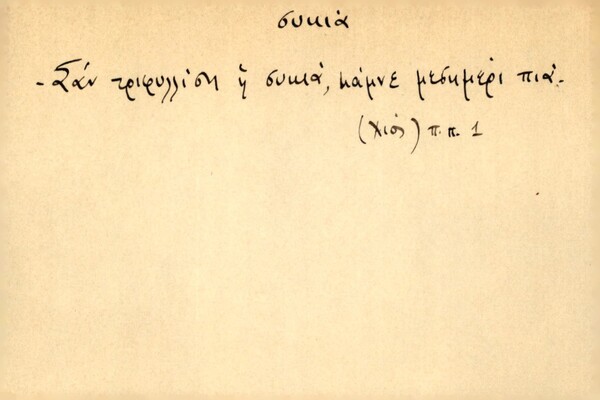 συκιά
- Σάν τριφυλλίση ἡ συκιά, κάμνε μεσημέρι πιά.-
(Χίος) π.π. 1